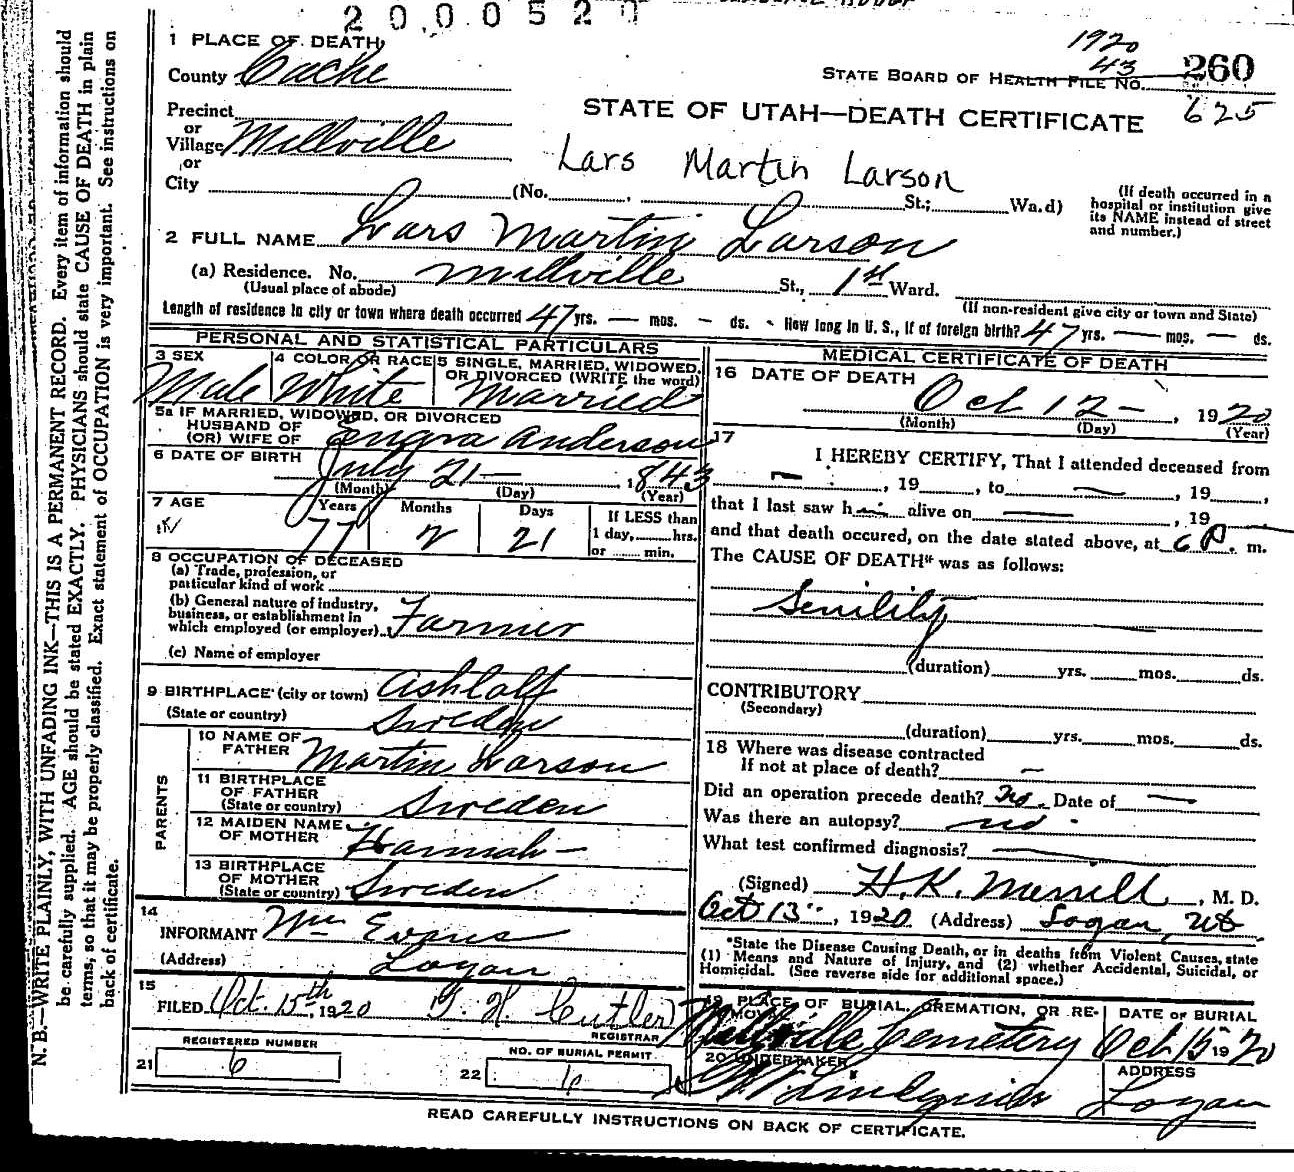 2 0 0 0 5 2 0
1 PLACE OF DEATH
County Cache
1920
43
STATE BOARD OF HEALTH FILE NO. 260
625
STATE OF UTAH—DEATH CERTIFICATE
Precinct
or
Village Millville
or
City (No. , St.; Wa.d)
Lars Martin Larson
(If death occurred in a
hospital or institution give
its NAME instead of street
and number.)
2 FULL NAME Lars Martin Larson
(a) Residence. No. Millville St., 1st Ward.
(Usual place of abode)
(If non-resident give city or town and State)
Length of residence in city or town where death occurred 47 yrs. — mos. — ds. How long in U. S., if of foreign birth? 47 yrs. — mos. — ds.
PERSONAL AND STATISTICAL PARTICULARS
3 SEX
Male
4 COLOR OR RACE
White
5 SINGLE, MARRIED, WIDOWED,
OR DIVORCED (WRITE the word)
Married
5a IF MARRIED, WIDOWED, OR DIVORCED
HUSBAND OF
(OR) WIFE OF Engra Anderson
6 DATE OF BIRTH
July 21— , 1843
(Month) (Day) (Year)
7 AGE
Years Months Days
77 2 21
If LESS than
1 day, hrs.
or min.
8 OCCUPATION OF DECEASED
(a) Trade, profession, or
particular kind of work
(b) General nature of industry,
business, or establishment in
which employed (or employer) Farmer
(c) Name of employer
9 BIRTHPLACE (city or town) Ashlolf
(State or country) Sweden
PARENTS
10 NAME OF
FATHER Martin Larson
11 BIRTHPLACE
OF FATHER
(State or country) Sweden
12 MAIDEN NAME
OF MOTHER Hannah —
13 BIRTHPLACE
OF MOTHER
(State or country) Sweden
14
INFORMANT Wm Evans
(Address) Logan
15
FILED Oct. 15th, 1920 G. H. Cutler
REGISTRAR
REGISTERED NUMBER
21 6
NO. OF BURIAL PERMIT
22 6
MEDICAL CERTIFICATE OF DEATH
16 DATE OF DEATH
Oct 12 — , 1920
(Month) (Day) (Year)
17
I HEREBY CERTIFY, That I attended deceased from
— , 19 , to — , 19 ,
that I last saw h— alive on — , 19
and that death occured, on the date stated above, at 6 P. m.
The CAUSE OF DEATH* was as follows:
Senility
(duration) yrs. mos. ds.
CONTRIBUTORY
(Secondary)
(duration) yrs. mos. ds.
18 Where was disease contracted
If not at place of death? —
Did an operation precede death? No. Date of —
Was there an autopsy? no
What test confirmed diagnosis? —
(Signed) H. K. Merrill , M. D.
Oct 13 , 1920 (Address) Logan, Ut
*State the Disease Causing Death, or in deaths from Violent Causes, state
(1) Means and Nature of Injury, and (2) whether Accidental, Suicidal, or
Homicidal. (See reverse side for additional space.)
19 PLACE OF BURIAL, CREMATION, OR RE-
MOVAL
Millville Cemetery
DATE OF BURIAL
Oct 15 1920
20 UNDERTAKER
Lindquist
ADDRESS
Logan
READ CAREFULLY INSTRUCTIONS ON BACK OF CERTIFICATE.
N. B.—WRITE PLAINLY, WITH UNFADING INK—THIS IS A PERMANENT RECORD. Every item of information should
be carefully supplied. AGE should be stated EXACTLY. PHYSICIANS should state CAUSE OF DEATH in plain
terms, so that it may be properly classified. Exact statement of OCCUPATION is very important. See instructions on
back of certificate.